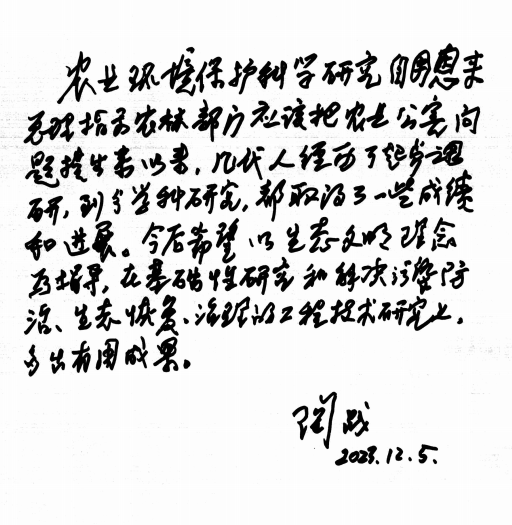 农业环境保护科学研究自周恩来
总理指示农林部门应该把农业公害问
题提出来以来，几代人经历了起步调
研，到今学科研究，都取得了一些成绩
和进展。今后希望以生态文明理念
为指导，在基础性研究和解决污染防
治、生态恢复、治理的工程技术研究上，
多出有用成果。
陶战
2023.12.5.